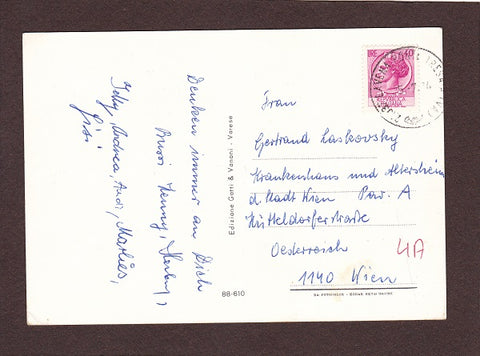 Denken immer an Dich
Bussi Henny, Herby,
Andrea, Andi, Markus,
Gisi
Edizione Gatti & Vanoni - Varese
88-610
LIRE 40
Frau
Gertrand Laskovsky
Krankenhaus und Altersheim
d. Stadt Wien Pav. A
Hütteldorferstraße
Oesterreich
1140 Wien
4A